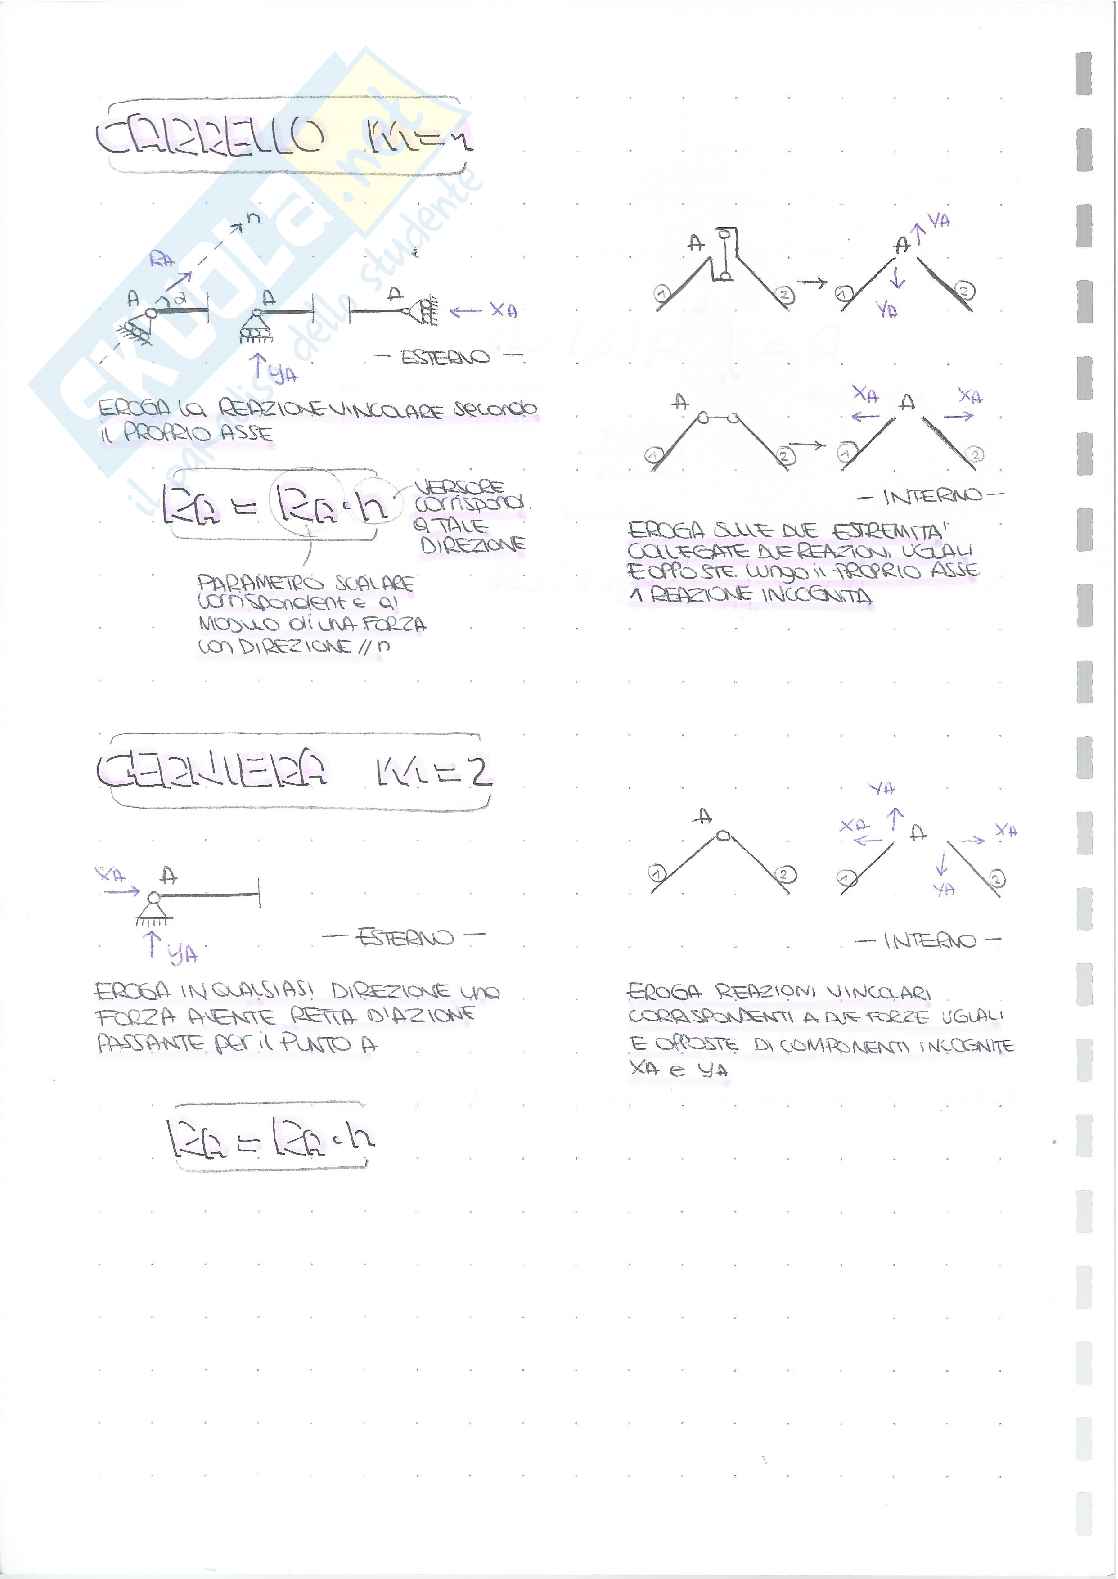 CARRELLO M=1
n
RA
A
α
A
A
XA
YA
- ESTERNO -
EROGA la REAZIONE VINCOLARE secondo
il PROPRIO ASSE
RA = RA · n
VERSORE
corrispond.
a TALE
DIREZIONE
PARAMETRO SCALARE
corrispondente al
MODULO di UNA FORZA
con DIREZIONE // n
A
1
2
YA
A
1
2
YA
A
1
2
XA
A
XA
1
2
- INTERNO -
EROGA SULLE DUE ESTREMITA'
COLLEGATE DUE REAZIONI UGUALI
E OPPOSTE lungo il PROPRIO ASSE
1 REAZIONE INCOGNITA
CERNIERA M=2
XA
A
YA
- ESTERNO -
EROGA IN QUALSIASI DIREZIONE una
FORZA AVENTE RETTA D'AZIONE
PASSANTE per il PUNTO A
RA = RA · n
A
1
2
YA
XA
A
XA
1
YA
2
- INTERNO -
EROGA REAZIONI VINCOLARI
CORRISPONDENTI A DUE FORZE UGUALI
E OPPOSTE DI COMPONENTI INCOGNITE
XA e YA
SKUOLA.net
il paradiso dello studente